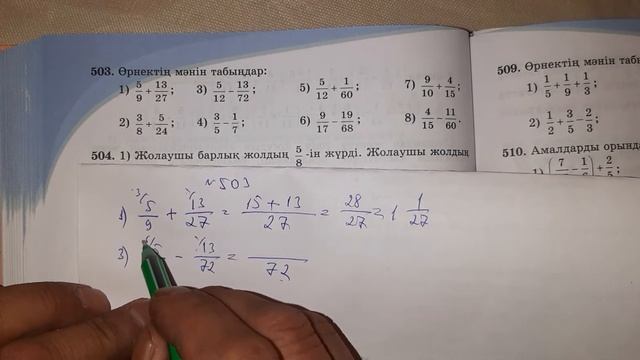 503. Өрнектің мәнін табыңдар:
1) 5/9 + 13/27; 3) 5/12 − 13/72; 5) 5/12 + 1/60; 7) 9/10 + 4/15;
2) 3/8 + 5/24; 4) 3/5 − 1/7; 6) 9/17 − 19/68; 8) 4/15 − 11/60.
504. 1) Жолаушы барлық жолдың 5/8 -ін жүрді. Жолаушы жолдың
509. Өрнектің мәнін
1) 1/5 + 1/9 + 1/3;
2) 1/2 + 3/5 − 2/3;
510. Амалдарды
№503
1) 5/9 + 13/27 = 15 + 13/27 = 28/27 = 1 1/27
3) − 13/72 = /72